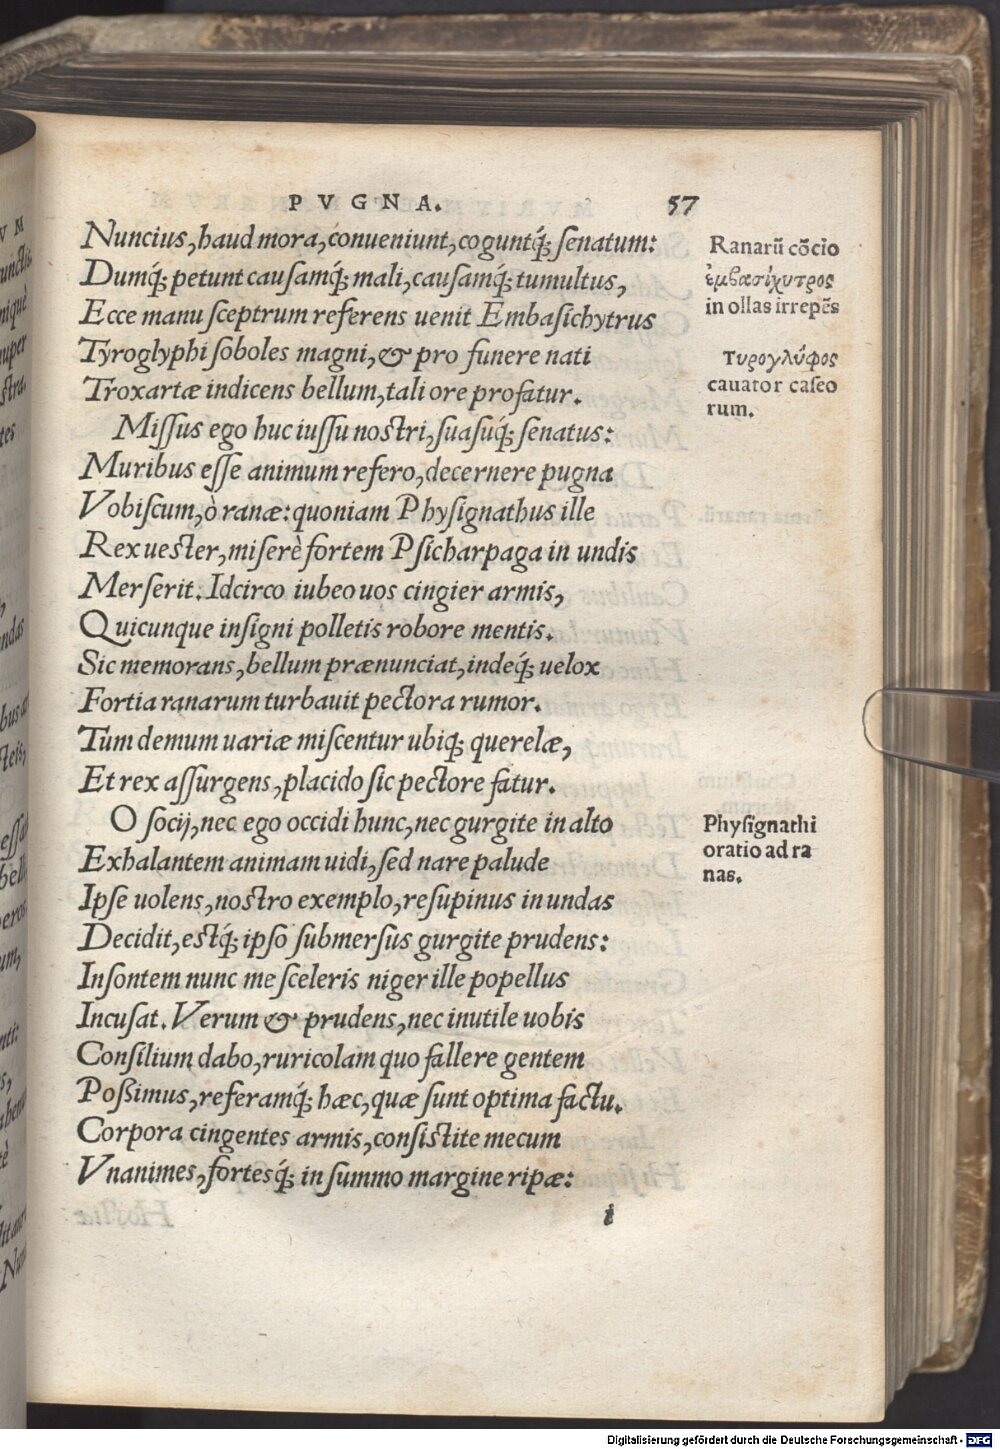 PVGNA. 57
Nuncius, haud mora, conueniunt, coguntq́; senatum:
Dumq́; petunt causamq́; mali, causamq́; tumultus,
Ecce manu sceptrum referens uenit Embasichytrus
Tyroglyphi soboles magni, & pro funere nati
Troxartæ indicens bellum, tali ore profatur.
Missus ego huc iussu nostri, suasuq́; senatus:
Muribus esse animum refero, decernere pugna
Vobiscum, ò ranæ: quoniam Physignathus ille
Rex uester, miserè fortem Psicharpaga in undis
Merserit. Idcirco iubeo uos cingier armis,
Quicunque insigni polletis robore mentis.
Sic memorans, bellum prænunciat, indeq́; uelox
Fortia ranarum turbauit pectora rumor.
Tum demum uariæ miscentur ubiq; querelæ,
Et rex assurgens, placido sic pectore fatur.
O socij, nec ego occidi hunc, nec gurgite in alto
Exhalantem animam uidi, sed nare palude
Ipse uolens, nostro exemplo, resupinus in undas
Decidit, estq́; ipso submersus gurgite prudens:
Insontem nunc me sceleris niger ille popellus
Incusat. Verum & prudens, nec inutile uobis
Consilium dabo, ruricolam quo fallere gentem
Poßimus, referamq́; hæc, quæ sunt optima factu.
Corpora cingentes armis, consistite mecum
Vnanimes, fortesq́; in summo margine ripæ:
i
Ranarũ cõcio
ἐμβασίχυτρος
in ollas irrepẽs
Τυρογλύφος
cauator caseo
rum.
Physignathi
oratio ad ra
nas.
Digitalisierung gefördert durch die Deutsche Forschungsgemeinschaft - DFG